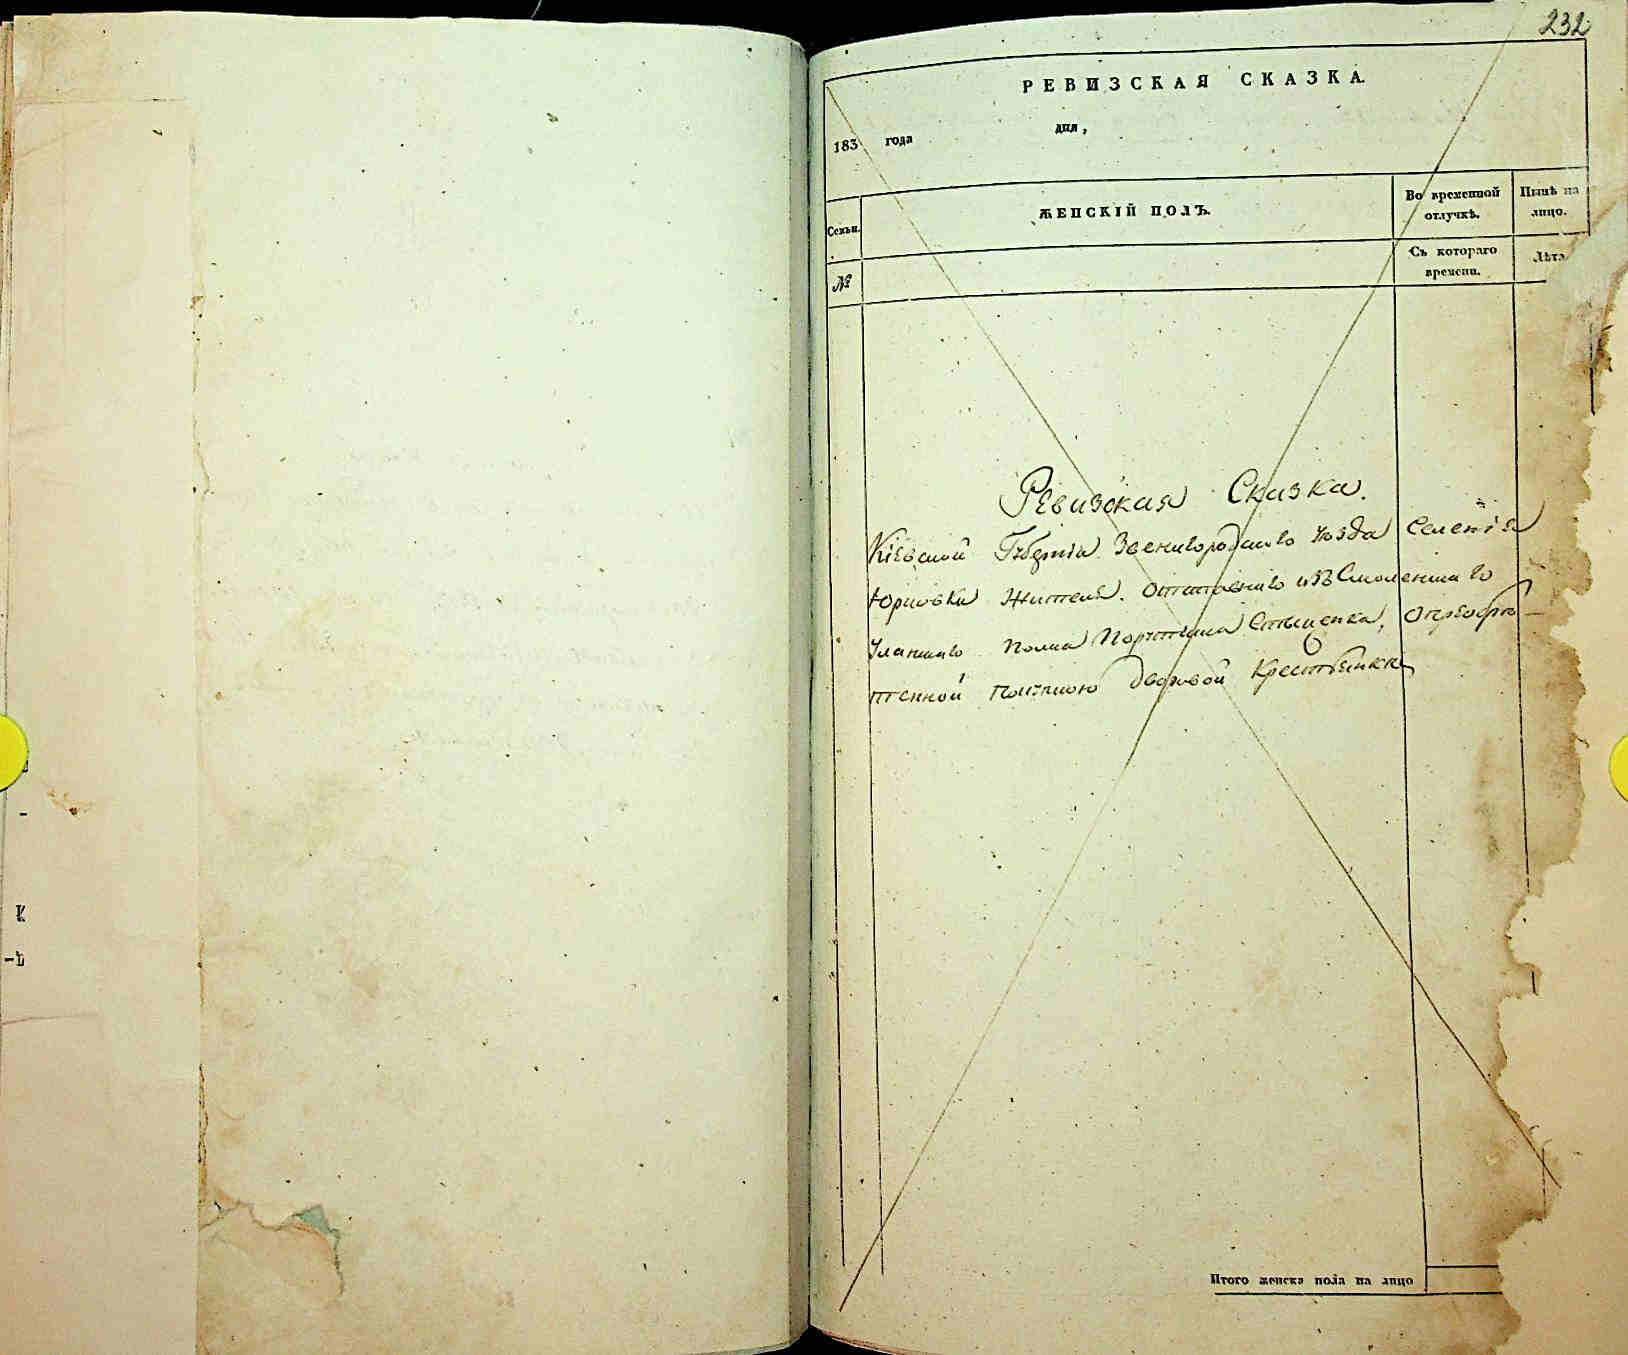 232
РЕВИЗСКАЯ СКАЗКА.
183 года дня,
Семьи. ЖЕНСКІЙ ПОЛЪ. Во временной отлучкѣ. Нынѣ на лицо.
№ Съ котораго времени. Лѣта
Ревизская Сказка.
Кіевской Губерніи Звенигородскаго уѣзда Селенія
Юрковки Жителя. Отставнаго изъ Смоленскаго
Уланскаго Полка Порутчика Стыценка, О
тенной дворовой Крестьянки
Итого женска пола на лицо
К
-ѣ